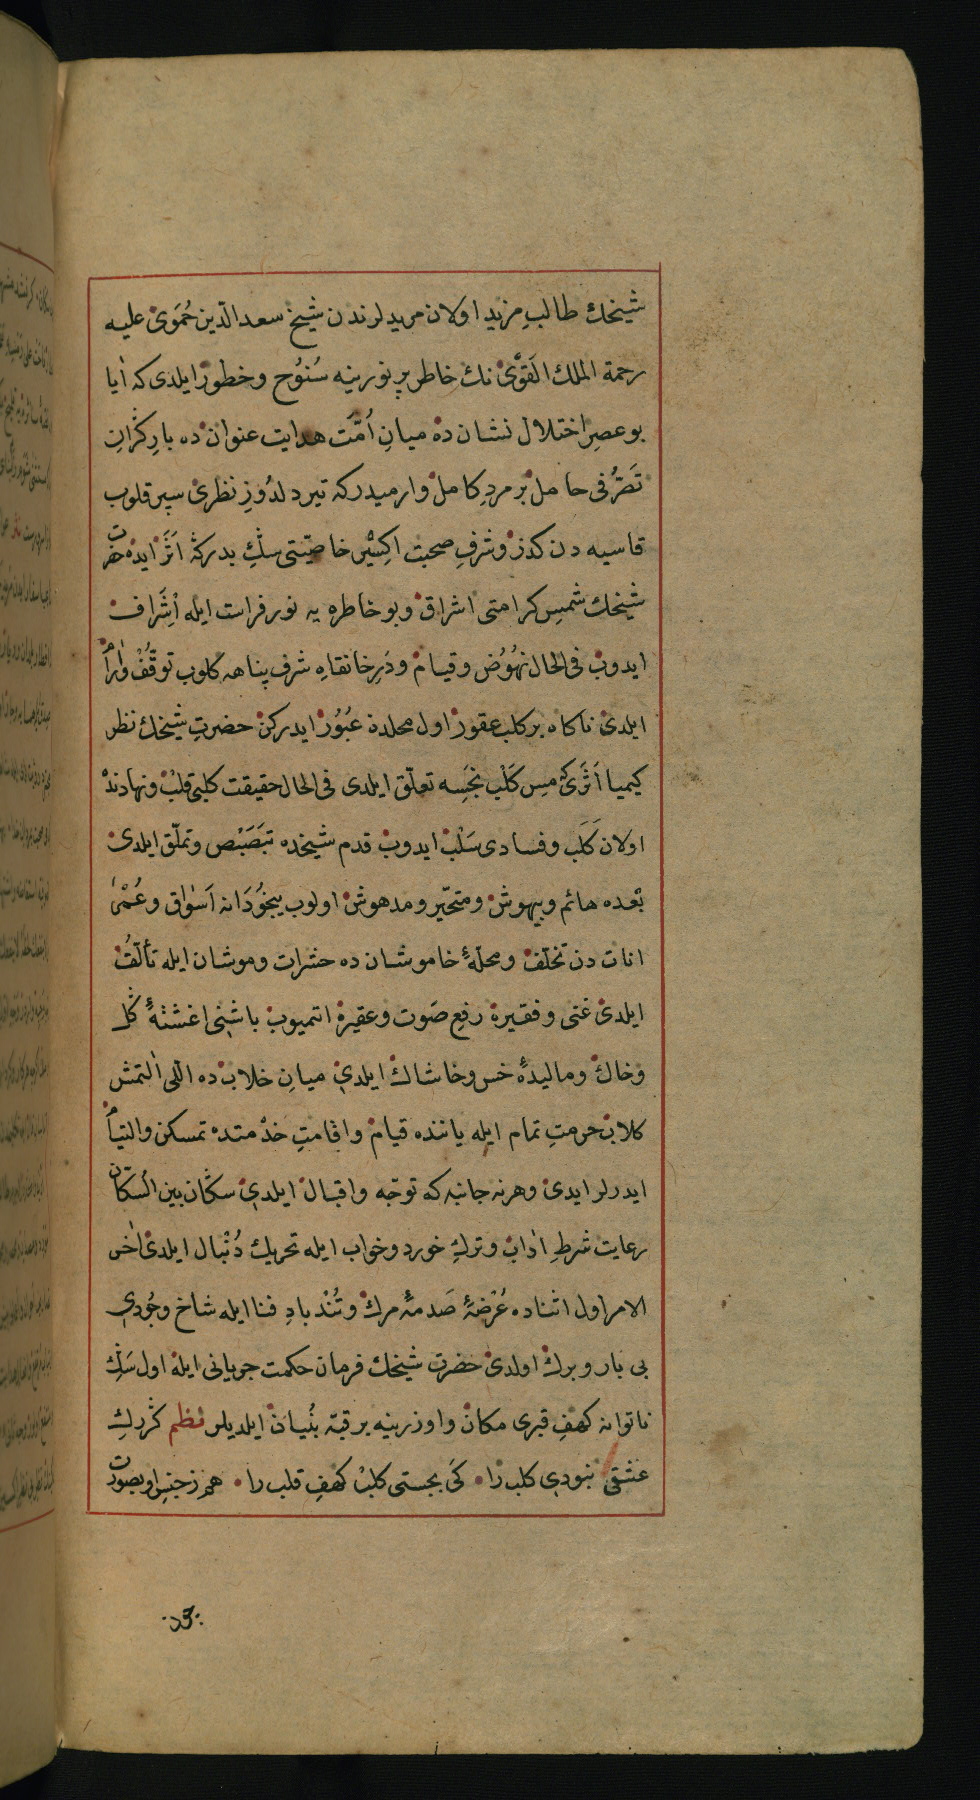 شيخك طالبِ مزيد اولان مريدلرندن شيخ سعد الدّين حُمَوى عليه
رحمة الملك القَوِّى نك خاطر پر نورينه سُنوُح وخطور ايلدى كه اٰيا
بو عصرِ اختلال نشان ده ميانِ اُمَّت هدايت عنوان ده بارِ گرانِ
تَصَرُّفى حامل بر مردِ كامل وارميدر كه تير دلدُوزِ نظرى سپر قلوب
قاسيه دن گذر وشرفِ صحبت اكِسْيرِ خاصيّتى سگِ بدرگه اَثَر ايده حضرت
شيخك شمسِ كرامتى اشراق وبو خاطره يه نورِ فراست ايله اِشَراف
ايدوب فى الحال نهُوُض وقيام ودَرِ خانقاهِ شرف پناهه كلوب توقُّفْ واٰراُم
ايلدى ناكاه بر كلب عقور اول محلدة عُبُور ايدركن حضرتِ شيخك نظر
كيميا اَثَرى مسِ كَلْب نجَسِه تعلّق ايلدى فى الحال حقيقت كلبى قلبْ ونهادندْ
اولان كَلَب وفسادى سَلْب ايدوب قدم شيخده تَبَصَبْص وتملّق ايلدى
بعده هائم وبيهوش ومتحّير ومدهوش اولوب بيخوُدَانه اَسوٰاق وعُمْر
انات دن تخلّف ومحلّهٔ خاموشان ده حشرات وموشان ايله تألّفُ
ايلدى غنى وفقيره رفعِ صَوت وعقيره اتميوب باشنى اغشتهٔ گل
وخاك وماليدهٔ خس وخاشاك ايلدى ميانِ خلاب ده اللى اٰلتمش
كلاب حرمتِ تمام ايله ياننده قيام واقامتِ خدمتده تمسكن والتيأم
ايدرلر ايدى وهر نه جانبه كه توجّه واقبال ايلدى سگان بين السكّان
رعايت شرطِ اٰداب وتركِ خورد وخواب ايله تحريك دُنْبال ايلدى اٰخر
الامر اول اثناده عُرْضهٔ صَدمهٔ مرك وتُنْدبادِ فنا ايله شاخ وجُودى
بى بار وبرك اولدى حضرت شيخك فرمان حكمت جريانى ايله اول سَگِ
ناتوانه كهفِ قبرى مكان واوزرينه بر قبّه بُنيان ايلديلر نظم گر رگِ
عشقى نبودى كلب را • كَى بجستى كلب كهفِ قلب را • هم زجنسِ او بصورت